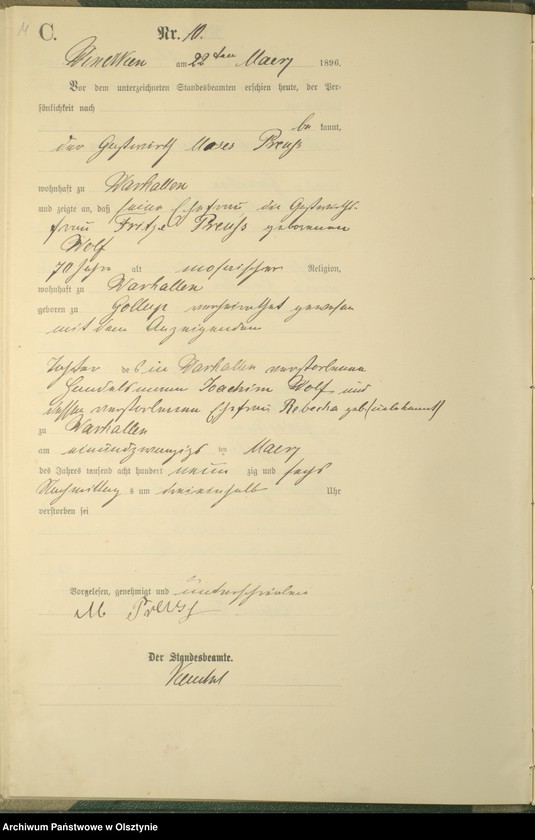 C.
Nr. 10.
am 22ten Maerz 1896.
Vor dem unterzeichneten Standesbeamten erschien heute, der Per-
sönlichkeit nach
be kannt,
der Gastwirth Moses Preuß
wohnhaft zu Warkallen
und zeigte an, daß seine Ehefrau die Gastwirths-
frau Preuß geborenen
Wolf
70 Jahre alt mosaischer Religion,
wohnhaft zu Warkallen
geboren zu Gollup verheirathet gewesen
mit dem Anzeigenden
Tochter des in Warkallen verstorbenen
Handelsmann Joachim Wolf und
dessen verstorbenen Ehefrau Rebecka geb (unbekannt)
zu Warkallen
am einundzwanzigs ten Maerz
des Jahres tausend acht hundert neun zig und sechs
Nachmittag s um Uhr
verstorben sei
Vorgelesen, genehmigt und unterschrieben
M Preuß
Der Standesbeamte.
Archiwum Państwowe w Olsztynie